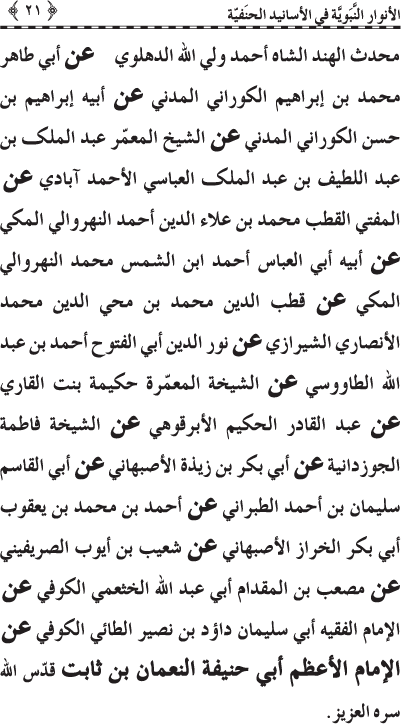 الأنوار النَّبَويَّة في الأسانيد الحنَفيّة ﴿ ٢١ ﴾
محدث الهند الشاه أحمد ولي الله الدهلوي عن أبي طاهر
محمد بن إبراهيم الكوراني المدني عن أبيه إبراهيم بن
حسن الكوراني المدني عن الشيخ المعمّر عبد الملك بن
عبد اللطيف بن عبد الملك العباسي الأحمد آبادي عن
المفتي القطب محمد بن علاء الدين أحمد النهروالي المكي
عن أبيه أبي العباس أحمد ابن الشمس محمد النهروالي
المكي عن قطب الدين محمد بن محي الدين محمد
الأنصاري الشيرازي عن نور الدين أبي الفتوح أحمد بن عبد
الله الطاووسي عن الشيخة المعمّرة حكيمة بنت القاري
عن عبد القادر الحكيم الأبرقوهي عن الشيخة فاطمة
الجوزدانية عن أبي بكر بن زيذة الأصبهاني عن أبي القاسم
سليمان بن أحمد الطبراني عن أحمد بن محمد بن يعقوب
أبي بكر الخراز الأصبهاني عن شعيب بن أيوب الصريفيني
عن مصعب بن المقدام أبي عبد الله الخثعمي الكوفي عن
الإمام الفقيه أبي سليمان داؤد بن نصير الطائي الكوفي عن
الإمام الأعظم أبي حنيفة النعمان بن ثابت قدّس الله
سره العزيز.